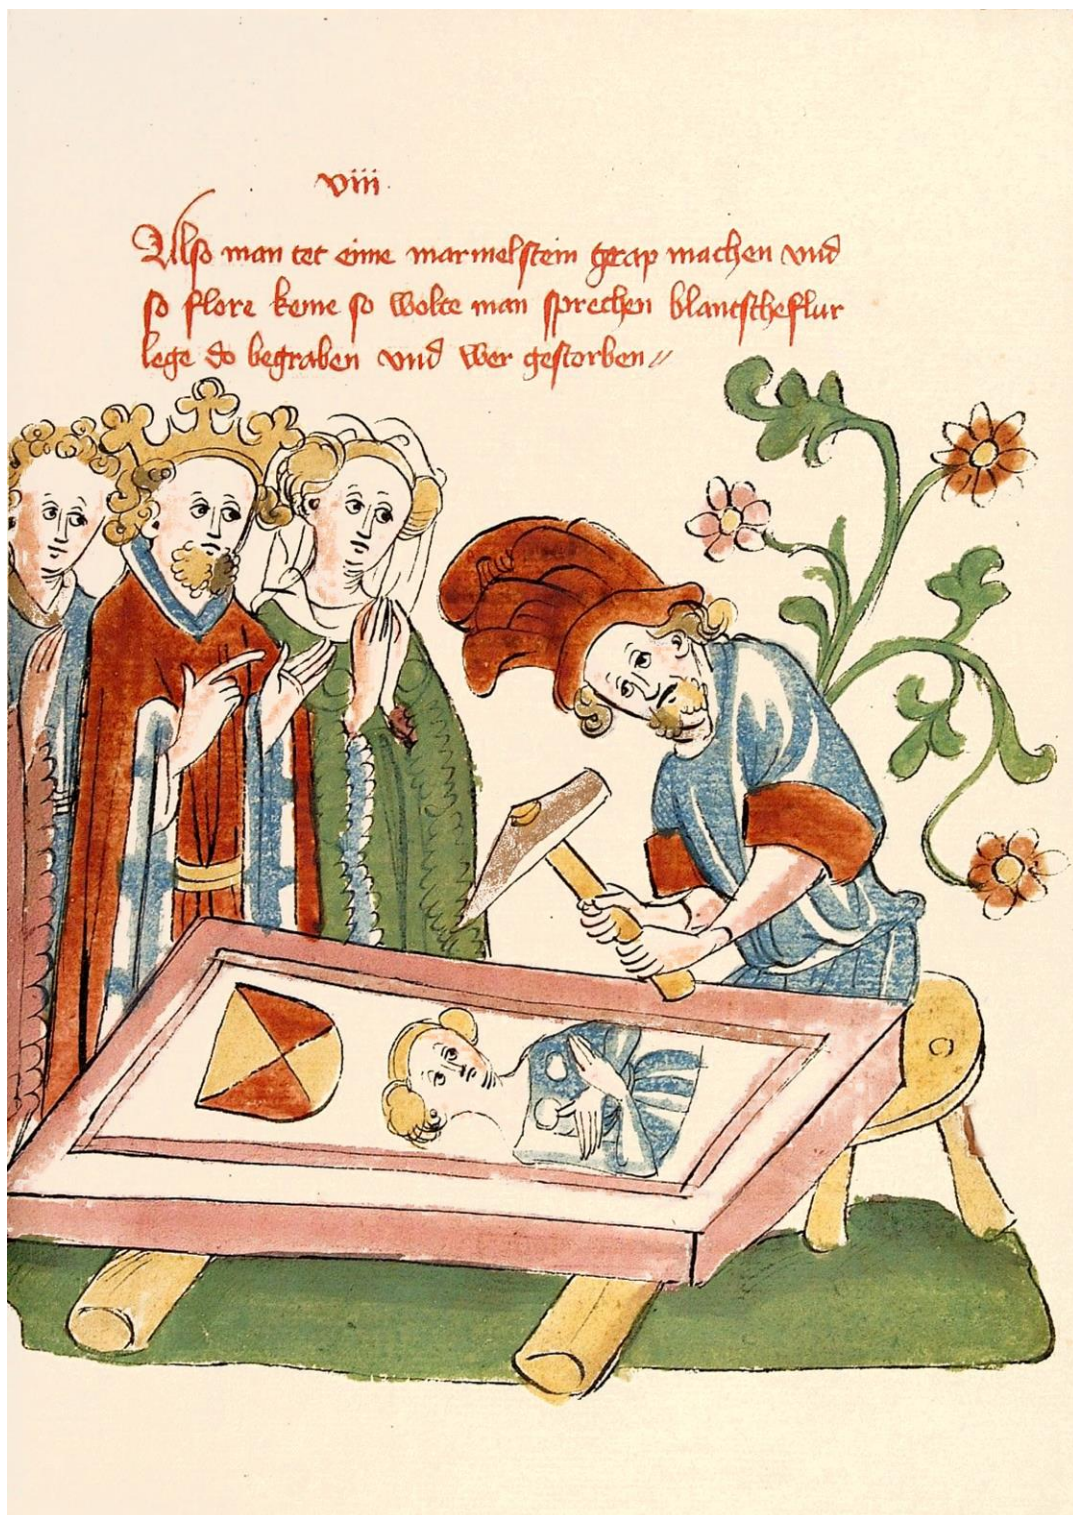 viii
Also man tet eime marmelstein grap machen vnd
so flore keme so wolte man sprechen blantscheflur
lege do begraben vnd wer gestorben //